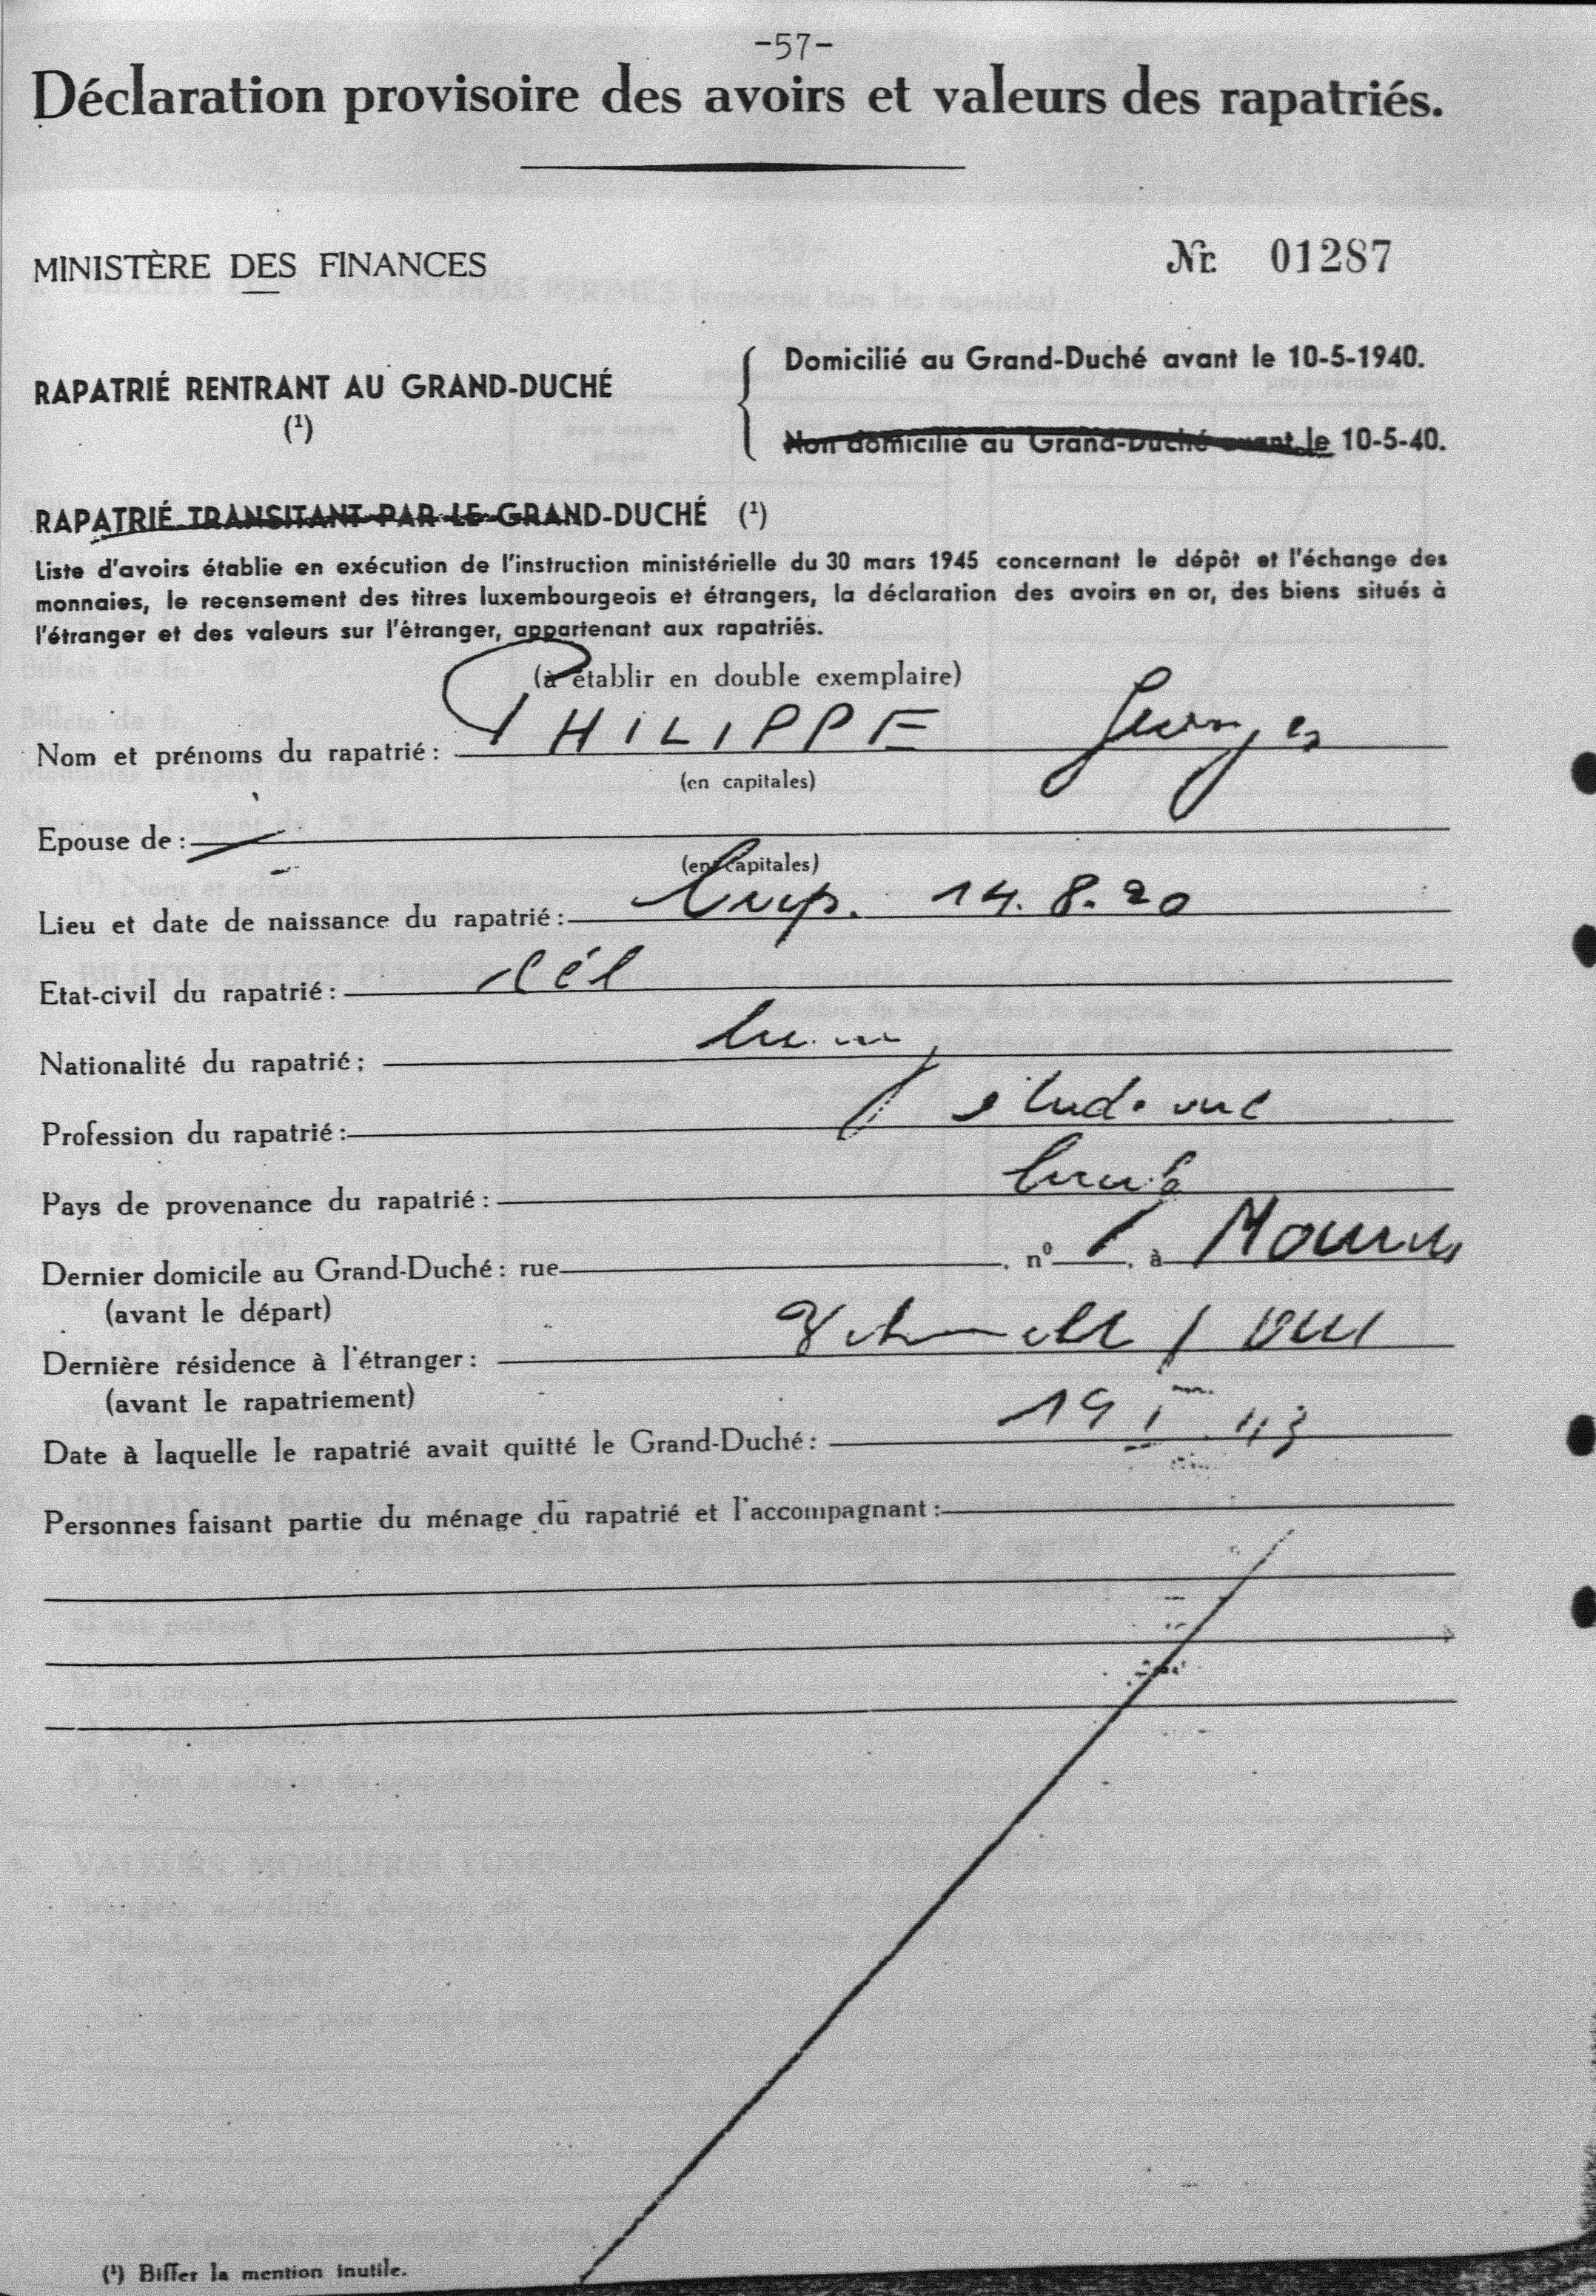 -57-
Déclaration provisoire des avoirs et valeurs des rapatriés.
MINISTÈRE DES FINANCES
Nr. 01287
RAPATRIÉ RENTRANT AU GRAND-DUCHÉ
(¹)
Domicilié au Grand-Duché avant le 10-5-1940.
Non domicilié au Grand-Duché avant le 10-5-40.
RAPATRIÉ TRANSITANT PAR LE GRAND-DUCHÉ (¹)
Liste d'avoirs établie en exécution de l'instruction ministérielle du 30 mars 1945 concernant le dépôt et l'échange des
monnaies, le recensement des titres luxembourgeois et étrangers, la déclaration des avoirs en or, des biens situés à
l'étranger et des valeurs sur l'étranger, appartenant aux rapatriés.
(à établir en double exemplaire)
Nom et prénoms du rapatrié: PHILIPPE Georges
(en capitales)
Epouse de:
(en capitales)
Lieu et date de naissance du rapatrié: 14.8.20
Etat-civil du rapatrié: cél
Nationalité du rapatrié:
Profession du rapatrié: étudiant
Pays de provenance du rapatrié:
Dernier domicile au Grand-Duché: rue . nº . à
(avant le départ)
Dernière résidence à l'étranger:
(avant le rapatriement)
Date à laquelle le rapatrié avait quitté le Grand-Duché: 19 I 43
Personnes faisant partie du ménage du rapatrié et l'accompagnant:
(¹) Biffer la mention inutile.